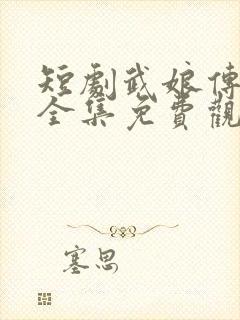 短劇武娘傳
全集免費觀
塞思